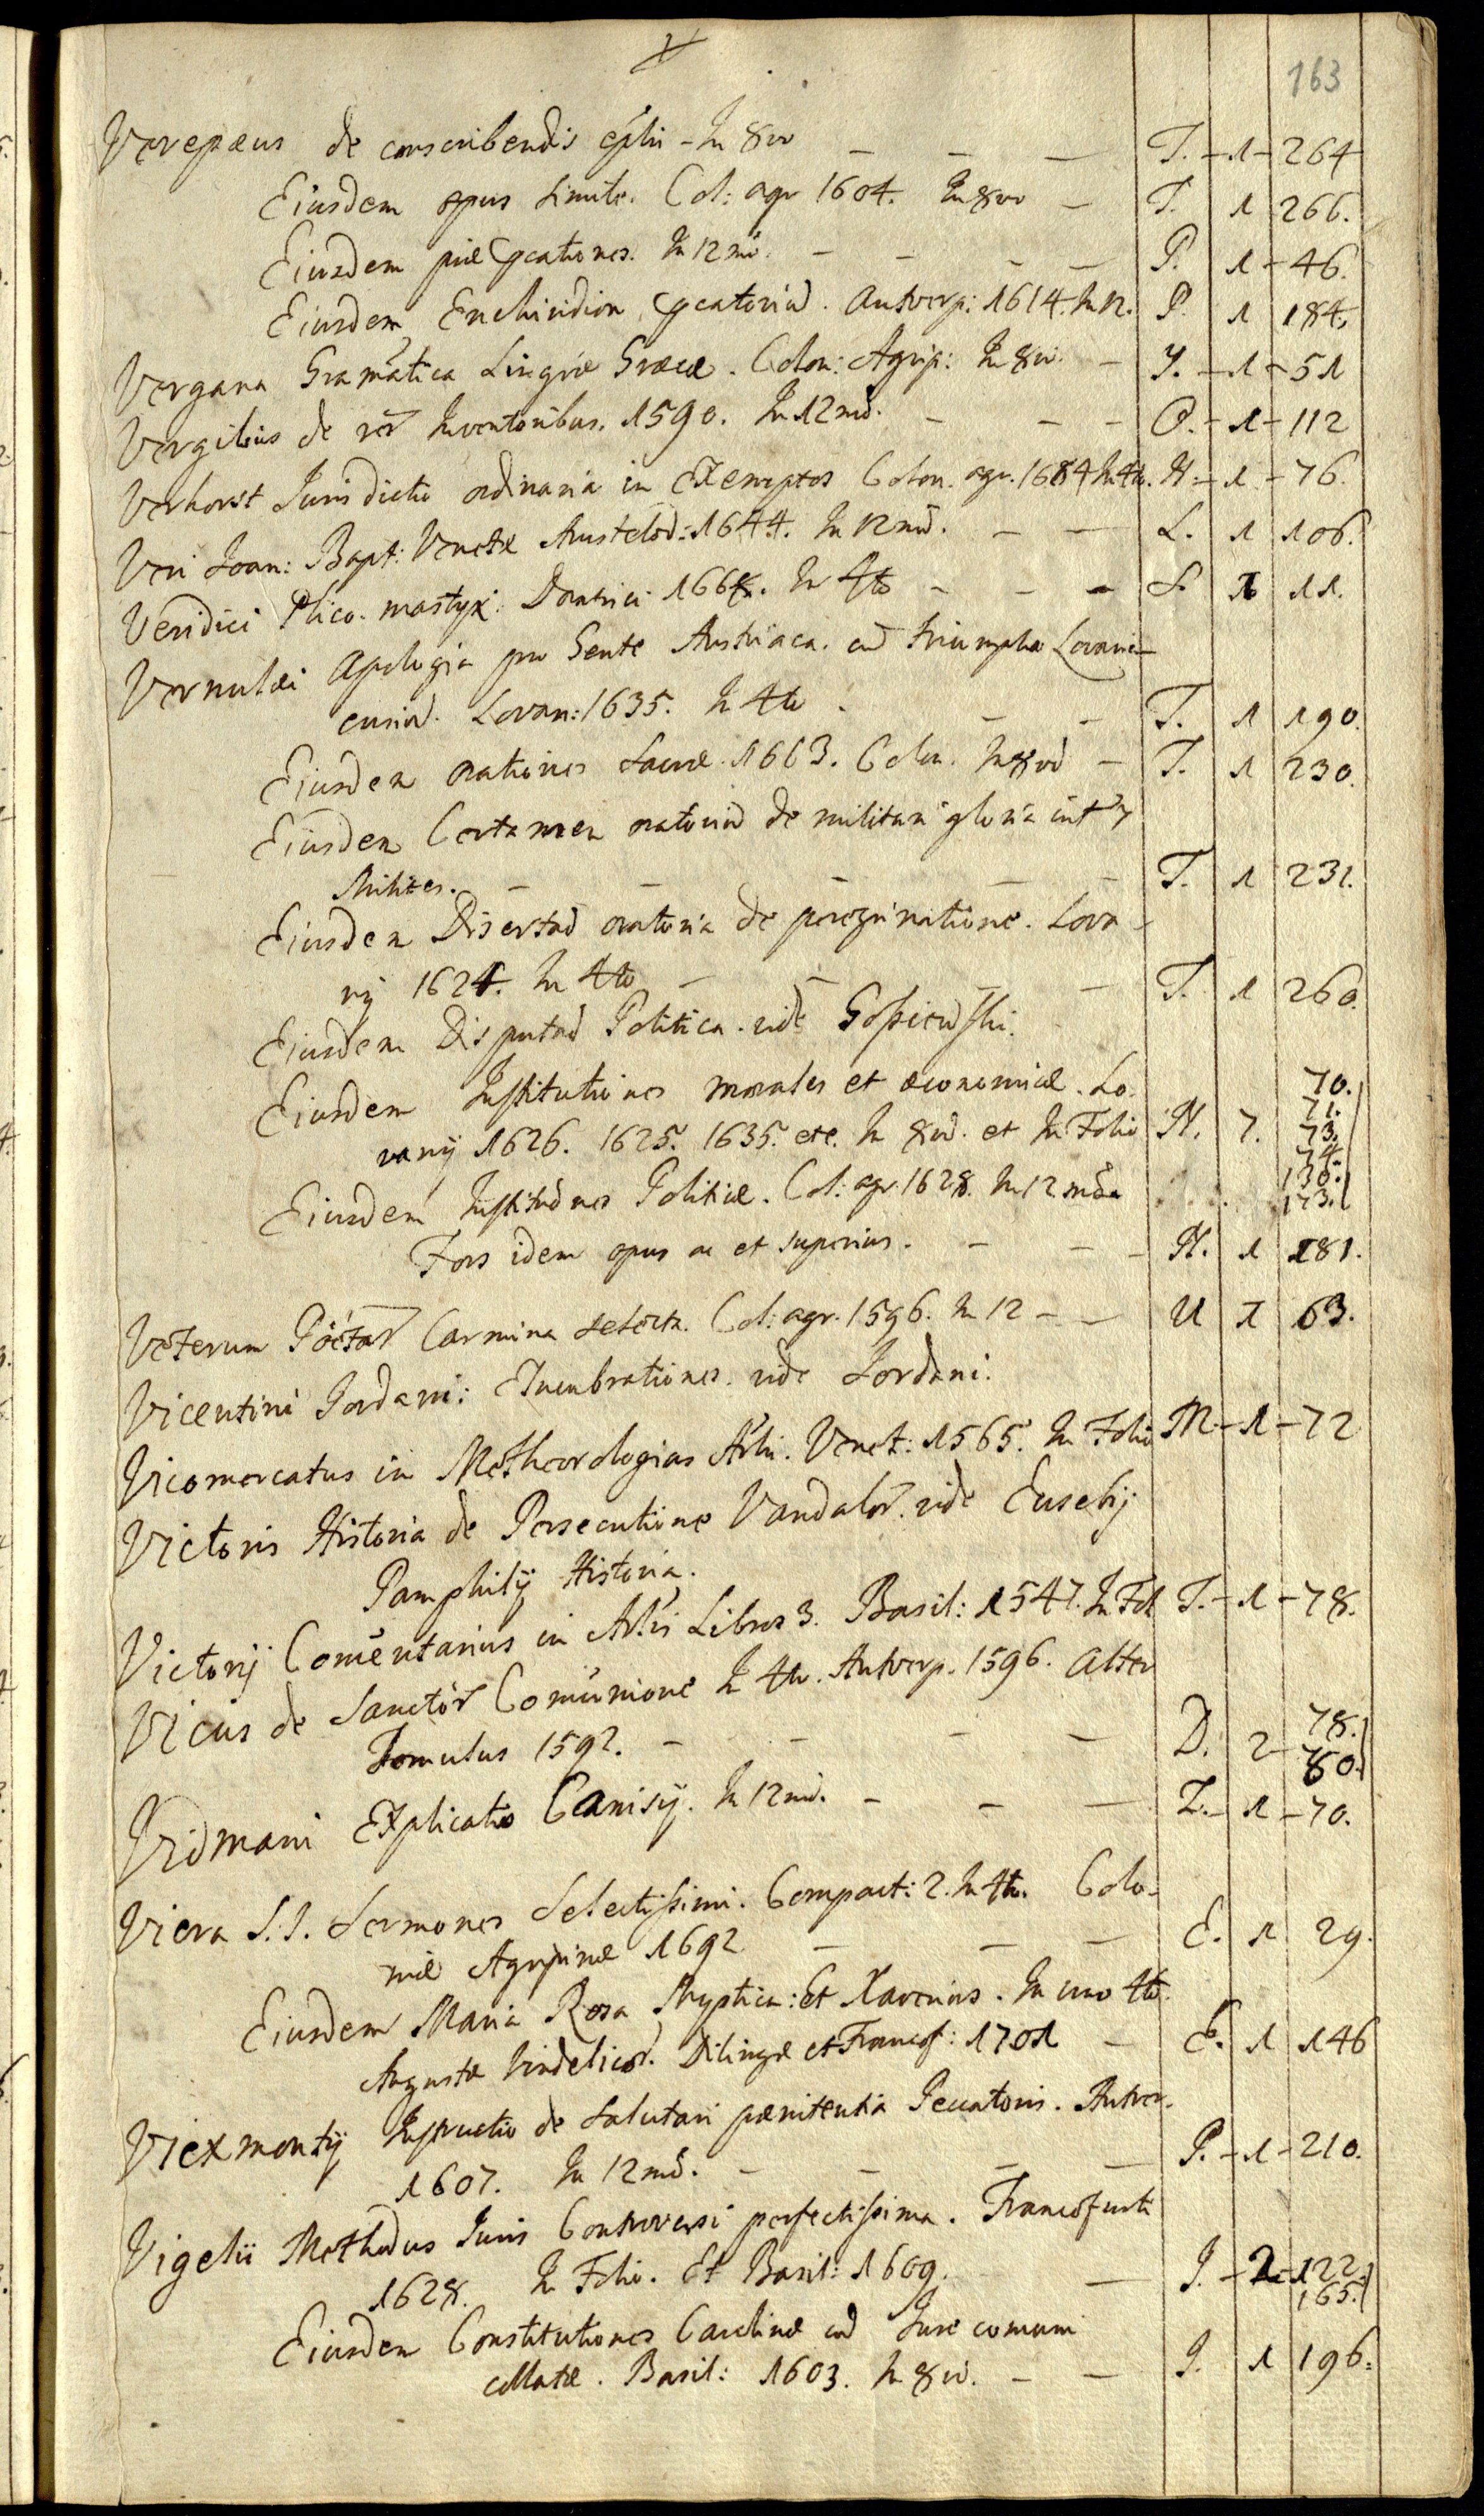 V
163
Verepæus de conscribendis eplis - In 8vo — — — T. - 1 - 264
Eiusdem opus simile. Col: agr 1604. In 8vo — T. 1 266.
Eiusdem piæ Pcationes. In 12mo. — — — — P. 1 - 46.
Eiusdem Enchiridion Pcatoriũ. Antverp: 1614. In 12. P. 1 184.
Vergara Gram̃atica Lingvæ Græcæ. Colon: Agrip: In 8vo. — Y. - 1 - 51
Vergilius de rer̃ Inventoribus. 1590. In 12mo. — — — O. - 1 - 112
Verhorst Jurisdictio ordinaria in Exemptos Colon. agr. 1684 In 4to. H. - 1 - 76.
Veri Joan: Bapt: Venetæ Amstelod: 1644. In 12mo. — — L. 1 106.
Veridici Plico-mastyx. Dantisci 166. In 4to — — — S. 1 11.
Vernulæi Apologia pro Gente Austriaca. ad triumpha Lovani-
ensiũ. Lovan: 1635. In 4to. — — T. 1 190.
Eiusdem orationes Sacræ. 1663. Colon. In 8vo — T. 1 230.
Eiusdem Certamen oratoriũ de militari gloria inter
Milites. — — — — — T. 1 231.
Eiusdem Disertad oratoria de peregrinatione. Lova-
nij 1624. In 4to — — — — T. 1 260.
Eiusdem Disputad Politica. vide Gosiewski.
Eiusdem Institutiones morales et æconomicæ. Lo-
vanij 1626. 1625. 1635. etc. In 8vo. et In Folio H. 7. 70. 71. 73. 74. 130. 173.
Eiusdem Institu͠nes Politicæ. Col: agr. 1628. In 12mo
Fors idem opus ac et superius. — — — H. 1 181.
Veterum Pöetar̃ Carmina selecta. Col: agr. 1596. In 12 — — U 1 63.
Vicentini Jordani: Elucubrationes. vide Jordani.
Vicomercatus in Metheorologias Arlis. Venet: 1565. In Folio M. - 1 - 72
Victoris Historia de Persecutione Vandalor̃. vide Eusebij
Pamphilij Historia.
Victorij Com̃entarius in Arlis Libros 3. Basil: 1547. In Fol T. - 1 - 78.
Vicus de Sanctor̃ Com̃unione In 4to. Antverp. 1596. alter
Tomulus 1592. — — — — D. 2 - 78. 80.
Vidmani Explicatio Canisij. In 12mo. — — — Z. - 1 - 70.
Viera S.J. Sermones Selectissimi. Compact: 2. In 4to. Colo-
niæ Agripinæ 1692 — — — E. 1 29.
Eiusdem Maria Rosa Myptica: Et Xaverius. In uno 4to.
Augustæ Vindelicor̃. Dilingæ et Francof: 1701 — E. 1 146
Viexmontij Instructio de salutari pænitentia Peccatoris. Antver.
1607. In 12mo. — — — — P. - 1 - 210.
Vigelii Methodus Juris Controversi perfectissima. Francofurti
1628. In Folio. Et Basil: 1609. — J. - 2 - 122. 165.
Eiusdem Constitutiones Carolinæ cũ Jure comuni
collatæ. Basil: 1603. In 8vo. — — J. 1 196.